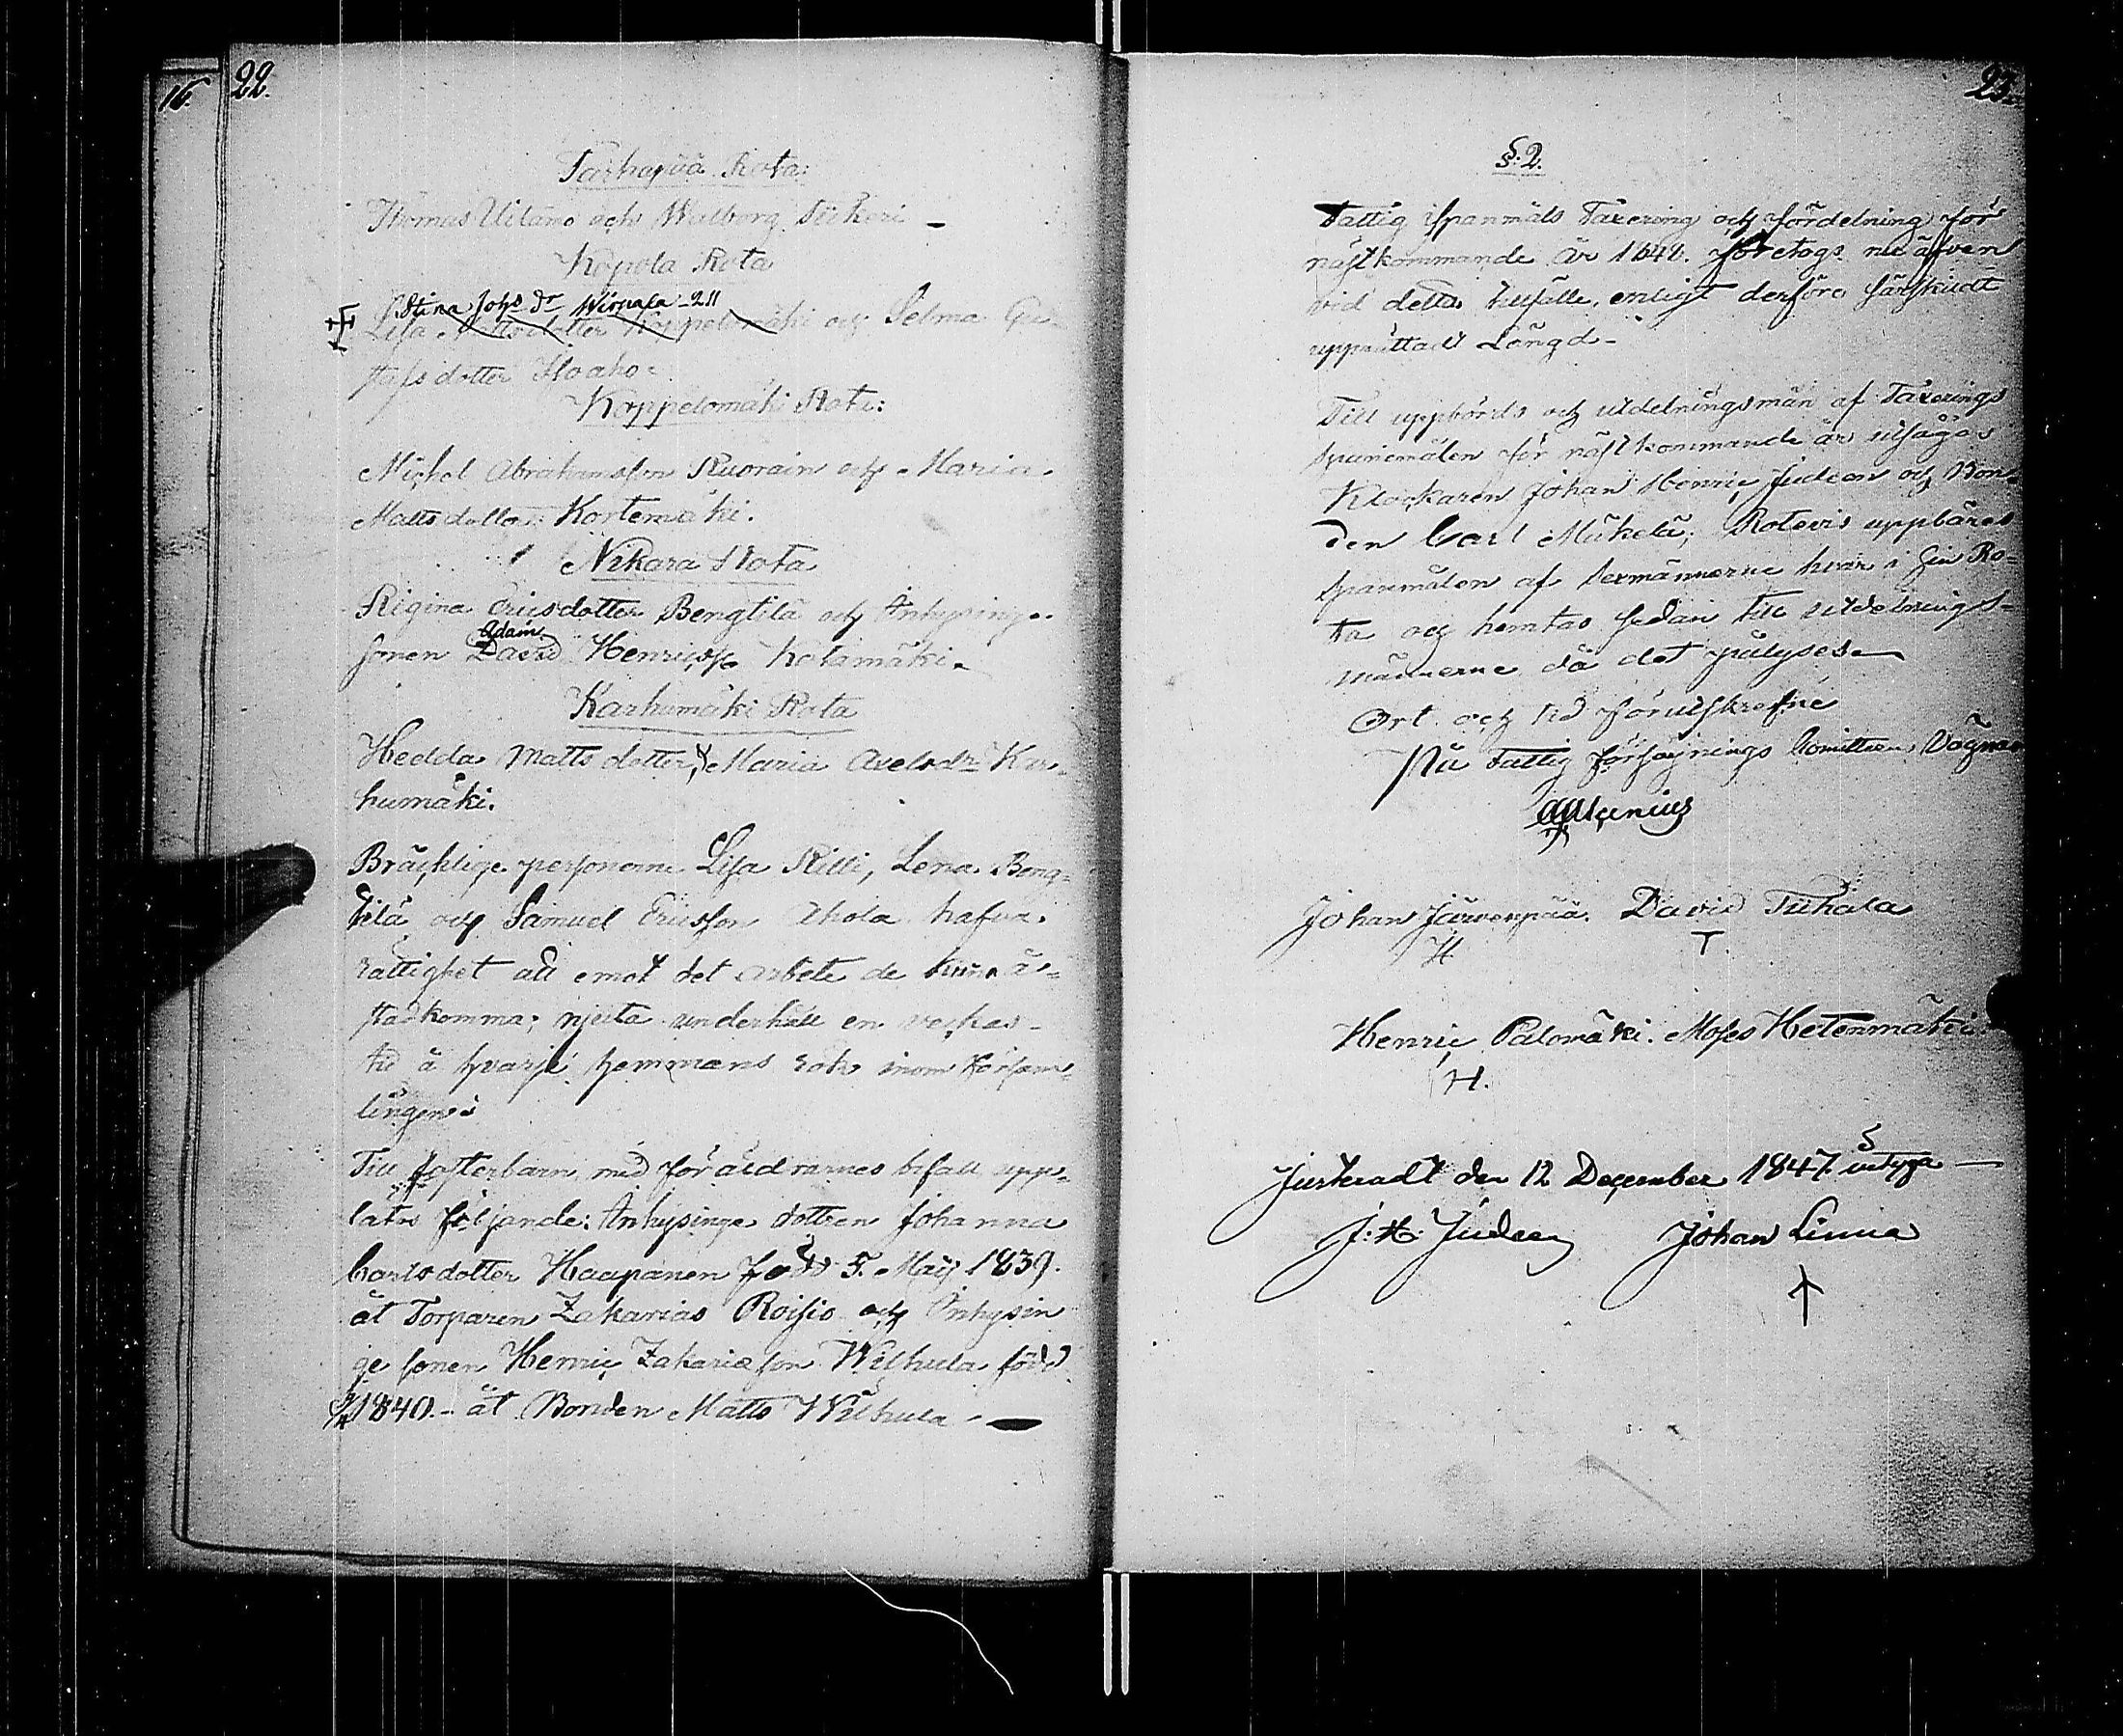 16.
22.
Tarhapää Rota:
Thomas Uitamo och Walborg Sikeri –
Kopola Rota
Stina Johs dr Wirpala – 211
Lisa Mattsdotter Koppelomäki och Selma Gu-
stafsdotter Iloaho:
Koppelomäki Rote:
Michel Abrahamsson Ruorain och Maria
Mattsdotter Kortemäki.
Nikara Rota
Regina Ericsdotter Bengtilä och Inhysinge
Adam
sonen David Henricss Kotamäki.
Karhumäki Rota
Hedda Mattsdotter, Maria Axelsdr Kar-
humäki.
Bräcklige personerne Lisa Killi, Lena Beng-
tilä och Samuel Ericsson Ahola hafva
rättighet att emot det arbete de kunna å-
stadkomma; njuta underhåll en veckas-
tid å hvarje hemmans rök inom Försam-
lingen:
Till fosterbarn med föräldrarnes bifall upp-
läts följande: Inhysinge dottren Johanna
Carlsdotter Haapanen född 5. Maij 1839.
åt Torparen Zakarias Roisio och Inhysin
ge sonen Henric Zakariæson Wilhula född
1840. – åt Bonden Matts Wilhula –
23.
§. 2.
Fattig spanmåls Taxering och fördelning för
nästkommande år 1848. företogs nu äfven
vid detta tillfälle, enligt derföre särskildt
upprättad Längd –
Till uppbörds och utdelningsmän af Taxerings
spanemålen för nästkommande år utsågos
Klockaren Johan Henric Judeen och Bon-
den Carl Mäkelä; Rotevis uppbäres
spanmålen af sexmännerne hvar i sin Ro-
ta och hemtas sedan till utdelnings-
männerne då det pålyses –
Ort och tid förutskrefne
På Fattig försörjnings Comitteens Vägnar
Johan Järvenpää. David Tuhala
H T.
Henric Palomäki. Moses Hetenmäki.
H.
Justeradt den 12 December 1847. intyga –
J: H: Judeen Johan Linna